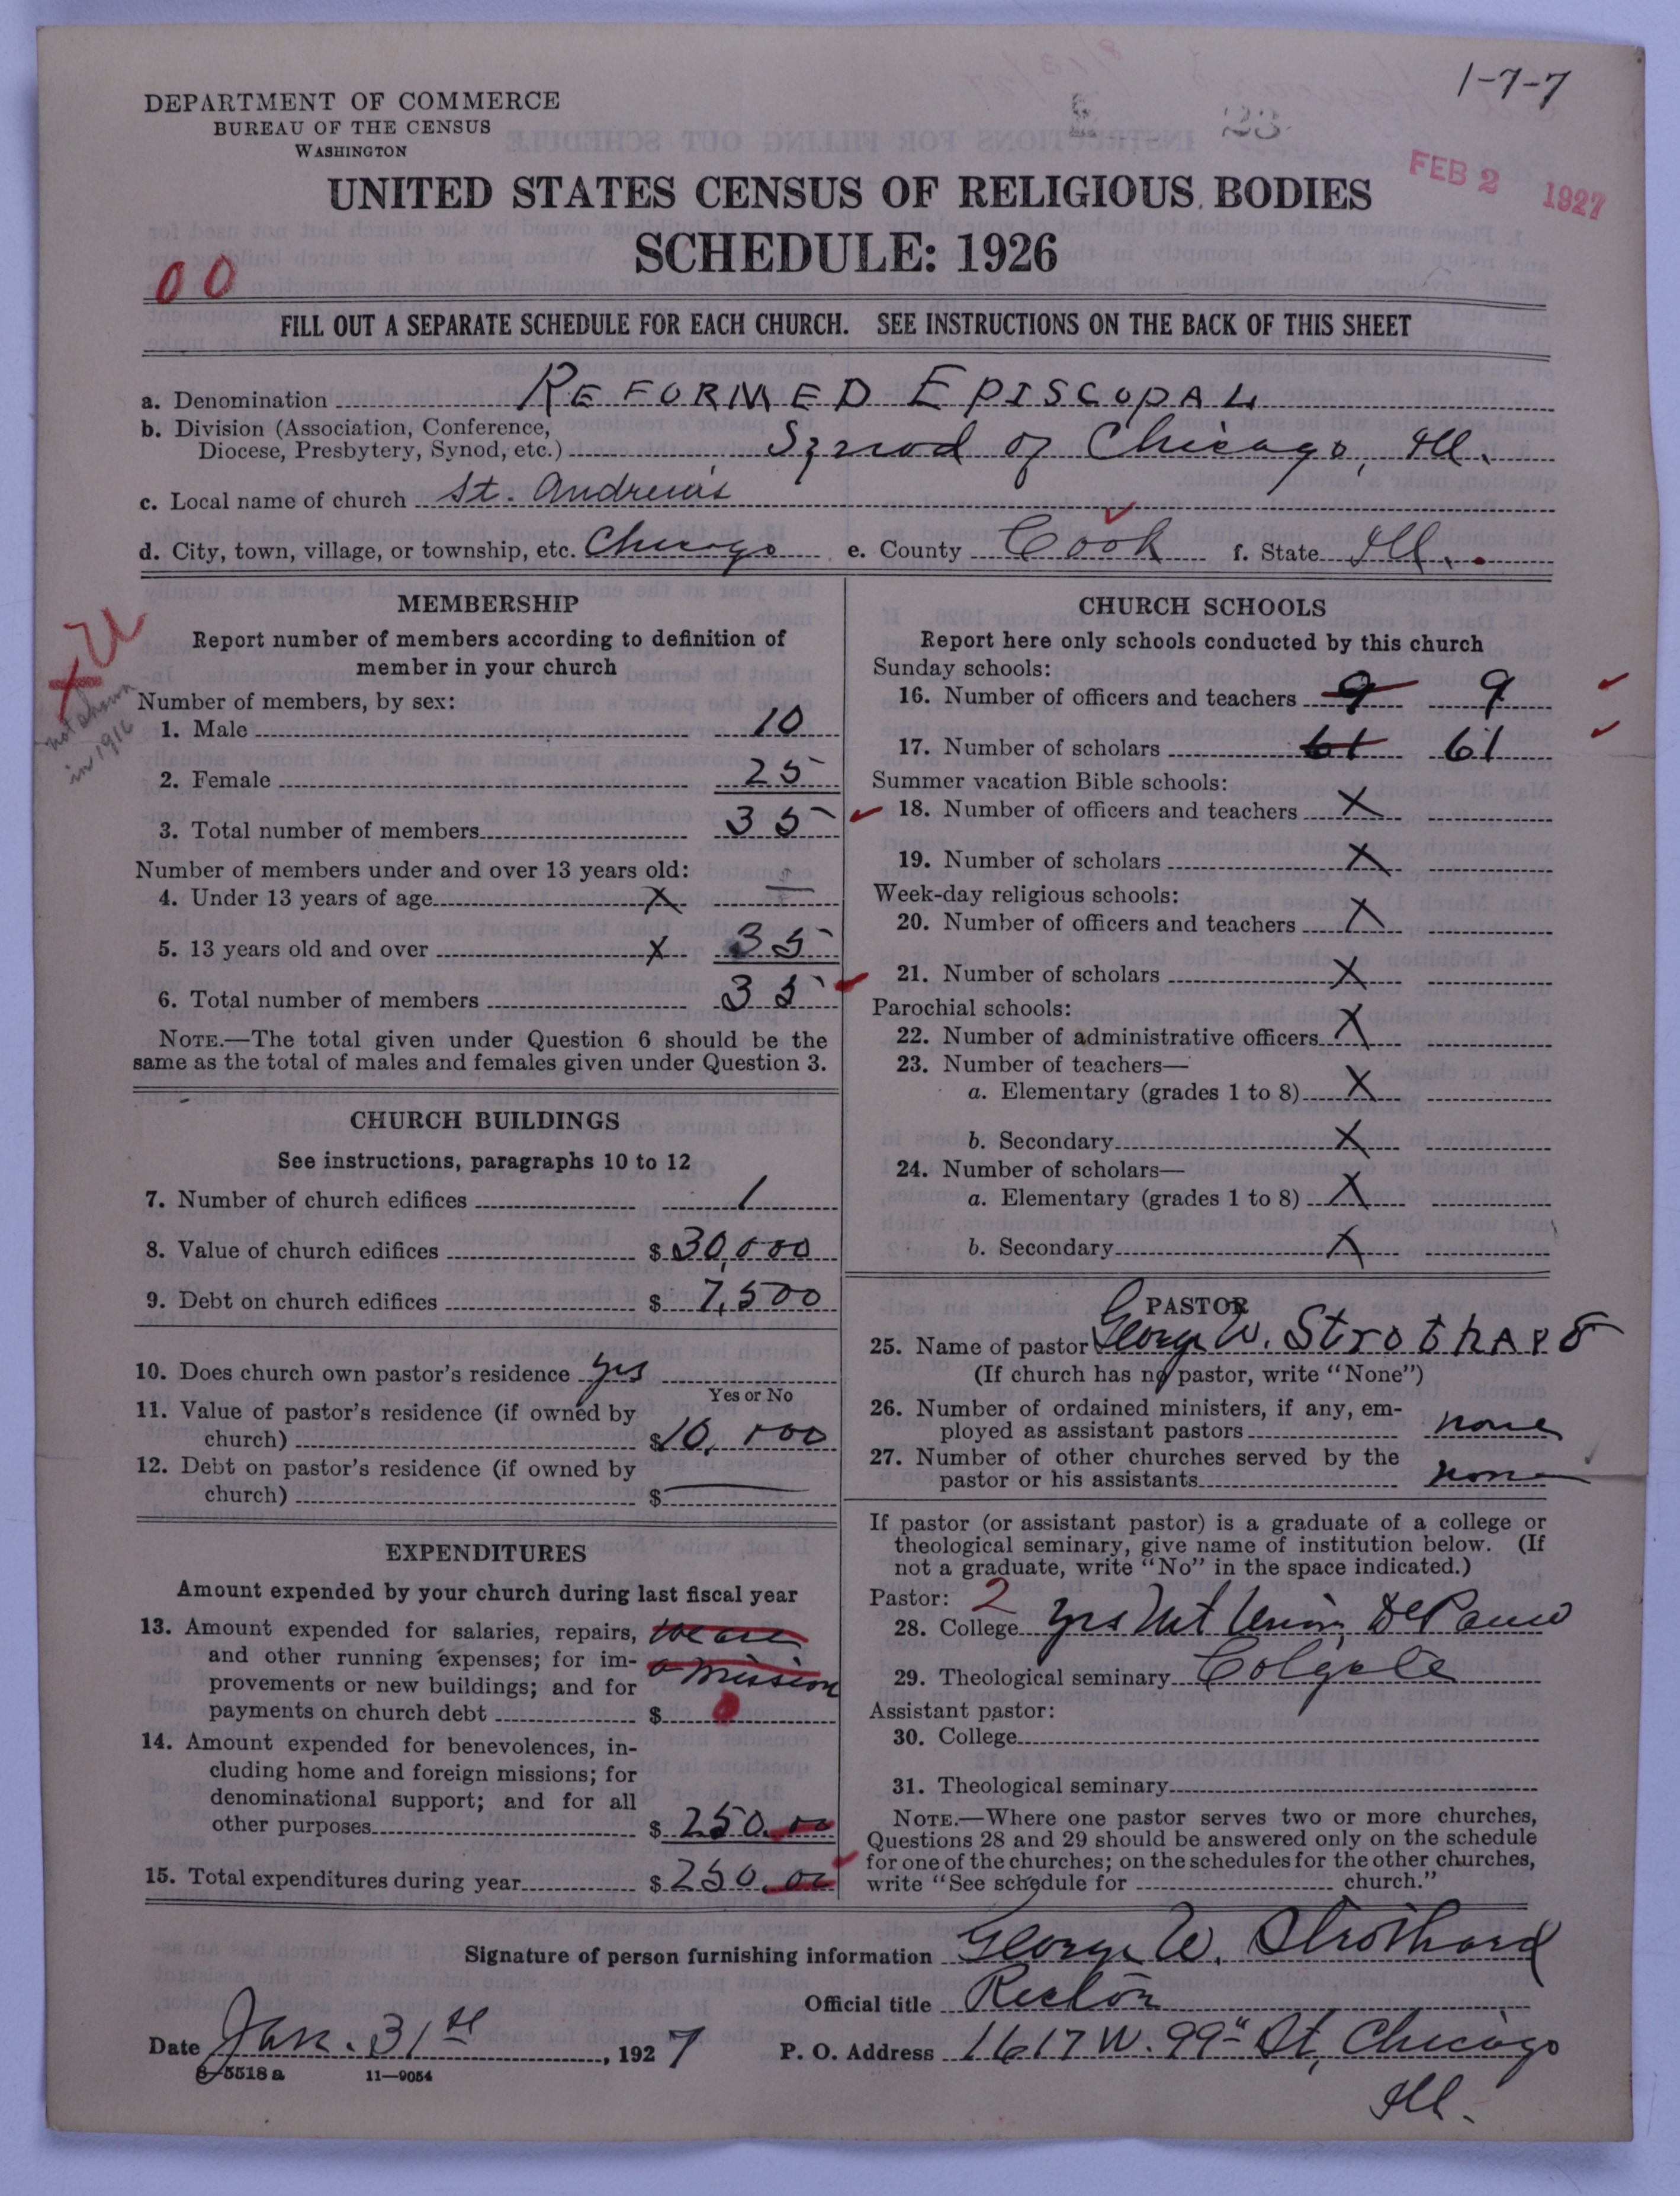 1-7-7
DEPARTMENT OF COMMERCE
BUREAU OF THE CENSUS
WASHINGTON
FEB 2 1927
UNITED STATES CENSUS OF RELIGIOUS BODIES
SCHEDULE: 1926
00
FILL OUT A SEPARATE SCHEDULE FOR EACH CHURCH. SEE INSTRUCTIONS ON THE BACK OF THIS SHEET
a. Denomination REFORMED EPISCOPAL
b. Division (Association, Conference,
Diocese, Presbytery, Synod, etc.) Synod of Chicago, Ill.
c. Local name of church St. Andrew's
d. City, town, village, or township, etc. Chicago e. County Cook f. State Ill.
MEMBERSHIP
Report number of members according to definition of
member in your church
not shown
in 1916
Number of members, by sex:
1. Male 10
2. Female 25
3. Total number of members 35
Number of members under and over 13 years old:
4. Under 13 years of age X
5. 13 years old and over X 35
6. Total number of members 35
NOTE.—The total given under Question 6 should be the
same as the total of males and females given under Question 3.
CHURCH BUILDINGS
See instructions, paragraphs 10 to 12
7. Number of church edifices 1
8. Value of church edifices $ 30,000
9. Debt on church edifices $ 7,500
10. Does church own pastor's residence yes
Yes or No
11. Value of pastor's residence (if owned by
church) $ 10,000
12. Debt on pastor's residence (if owned by
church) $
EXPENDITURES
Amount expended by your church during last fiscal year
13. Amount expended for salaries, repairs, we are
and other running expenses; for im- a mission
provements or new buildings; and for
payments on church debt $ 0
14. Amount expended for benevolences, in-
cluding home and foreign missions; for
denominational support; and for all
other purposes $ 250.00
15. Total expenditures during year $ 250.00
CHURCH SCHOOLS
Report here only schools conducted by this church
Sunday schools:
16. Number of officers and teachers 9 9
17. Number of scholars 61 61
Summer vacation Bible schools:
18. Number of officers and teachers X
19. Number of scholars X
Week-day religious schools:
20. Number of officers and teachers X
21. Number of scholars X
Parochial schools:
22. Number of administrative officers X
23. Number of teachers—
a. Elementary (grades 1 to 8) X
b. Secondary X
24. Number of scholars—
a. Elementary (grades 1 to 8) X
b. Secondary X
PASTOR
25. Name of pastor George W. Strothard
(If church has no pastor, write "None")
26. Number of ordained ministers, if any, em-
ployed as assistant pastors none
27. Number of other churches served by the
pastor or his assistants none
If pastor (or assistant pastor) is a graduate of a college or
theological seminary, give name of institution below. (If
not a graduate, write "No" in the space indicated.)
Pastor: 2
28. College yes Mt Union, De Pauw
29. Theological seminary Colgate
Assistant pastor:
30. College
31. Theological seminary
NOTE.—Where one pastor serves two or more churches,
Questions 28 and 29 should be answered only on the schedule
for one of the churches; on the schedules for the other churches,
write "See schedule for church."
Signature of person furnishing information George W. Strothard
Official title Rector
Date Jan. 31st, 1927 P. O. Address 1617 W. 99th St, Chicago
Ill.
8-5518a 11—9054